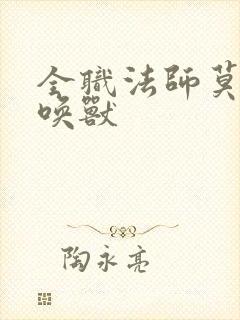 全職法師莫
喚獸
陶永亮